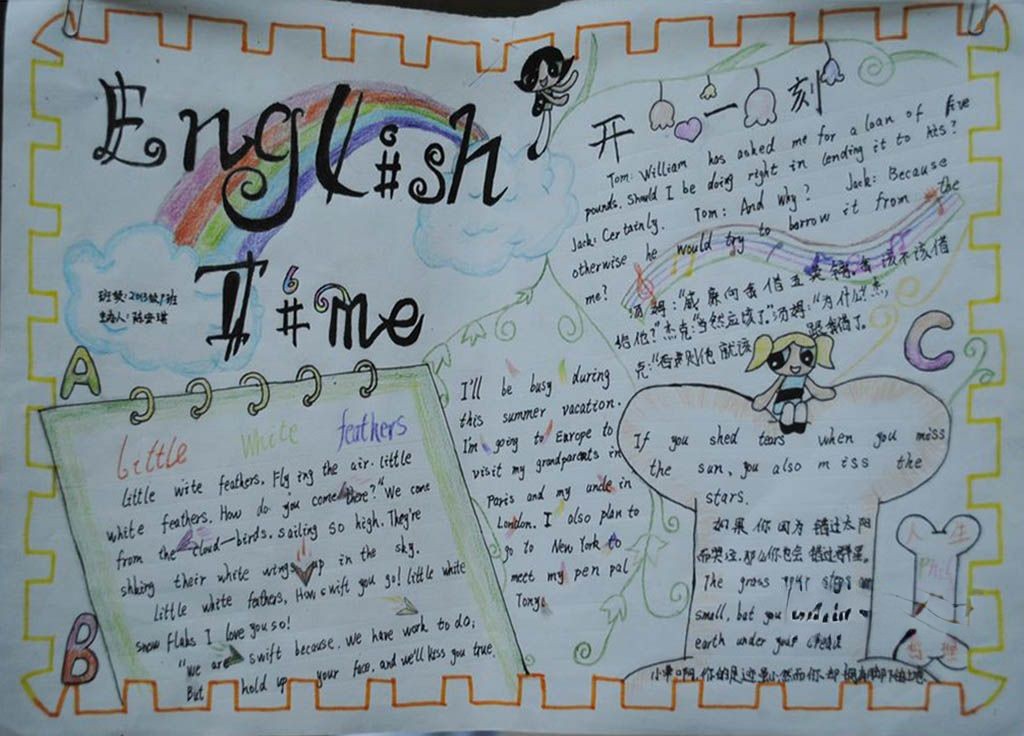 English
Time
班级:2013级1班
主办人:陈安琪
A
Little White feathers
little wite feathers. Fly ing the air. little
white feathers. How do you come there?"We come
from the cloud—birds. sailing so high. They're
shking their white wings up in the sky.
little white feathers. How swift you go! little white
snow flaks I love you so!
"we are swift because. we have work to do;
But hold up your face, and we'll kiss you true.
B
I'll be busy during
this summer vacation.
I'm going to Europe to
visit my grandparents in
Paris and my uncle in
London. I also plan to
go to New York to
meet my pen pal
Tony.
开心一刻
Tom: William has asked me for a loan of five
pounds. Should I be doing right in lending it to his?
Jack: Certainly. Tom: And Why? Jack: Because
otherwise he would try to borrow it from the
me?
汤姆:"威廉向我借五英镑,我该不该借
给他?"杰克:"当然应该了。"汤姆:"为什么?"杰
克:"否则他就该跟我借了。
C
If you shed tears when you miss
the sun, you also miss the
stars.
如果你因为错过太阳
而哭泣,那么你也会错过群星。
The grass your steps are
small, but you
earth under your tread
小草啊,你的足迹虽小,然而你却拥有脚下的土地
人生
Phil
哲理